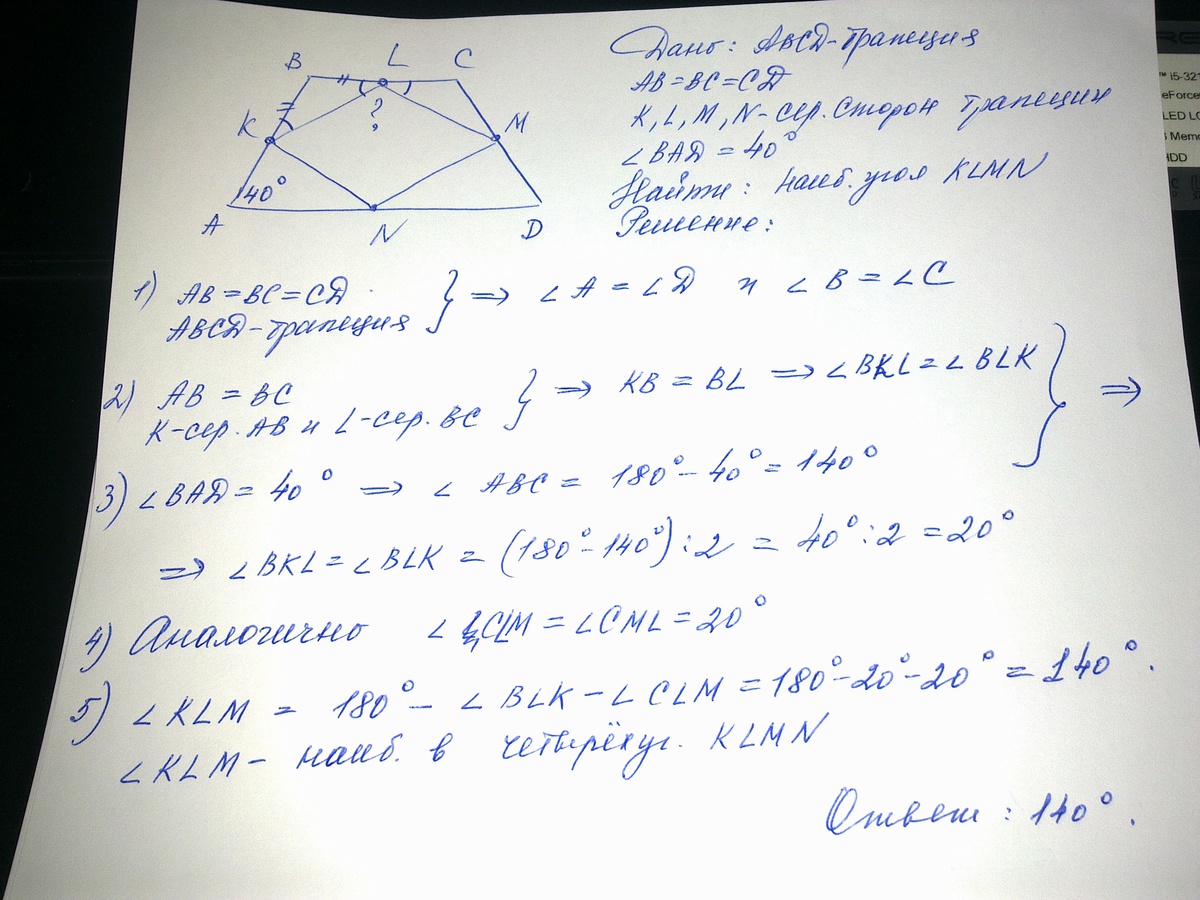 B L C
K ? M
40°
A N D
Дано: ABCD-трапеция
AB=BC=CD
K, L, M, N-сер. сторон трапеции
∠BAD = 40°
Найти: наиб. угол KLMN
Решение:
1) AB=BC=CD
ABCD-трапеция } ⇒ ∠A = ∠D и ∠B = ∠C
2) AB = BC
K-сер. AB и L-сер. BC } ⇒ KB = BL ⇒ ∠BKL = ∠BLK } ⇒
3) ∠BAD = 40° ⇒ ∠ABC = 180°-40° = 140°
⇒ ∠BKL = ∠BLK = (180°-140°):2 = 40°:2 = 20°
4) Аналогично ∠CLM = ∠CML = 20°
5) ∠KLM = 180° - ∠BLK - ∠CLM = 180°-20°-20° = 140°.
∠KLM - наиб. в четырёхуг. KLMN
Ответ: 140°.
i5-321
eForce
LED LC
Memo
HDD